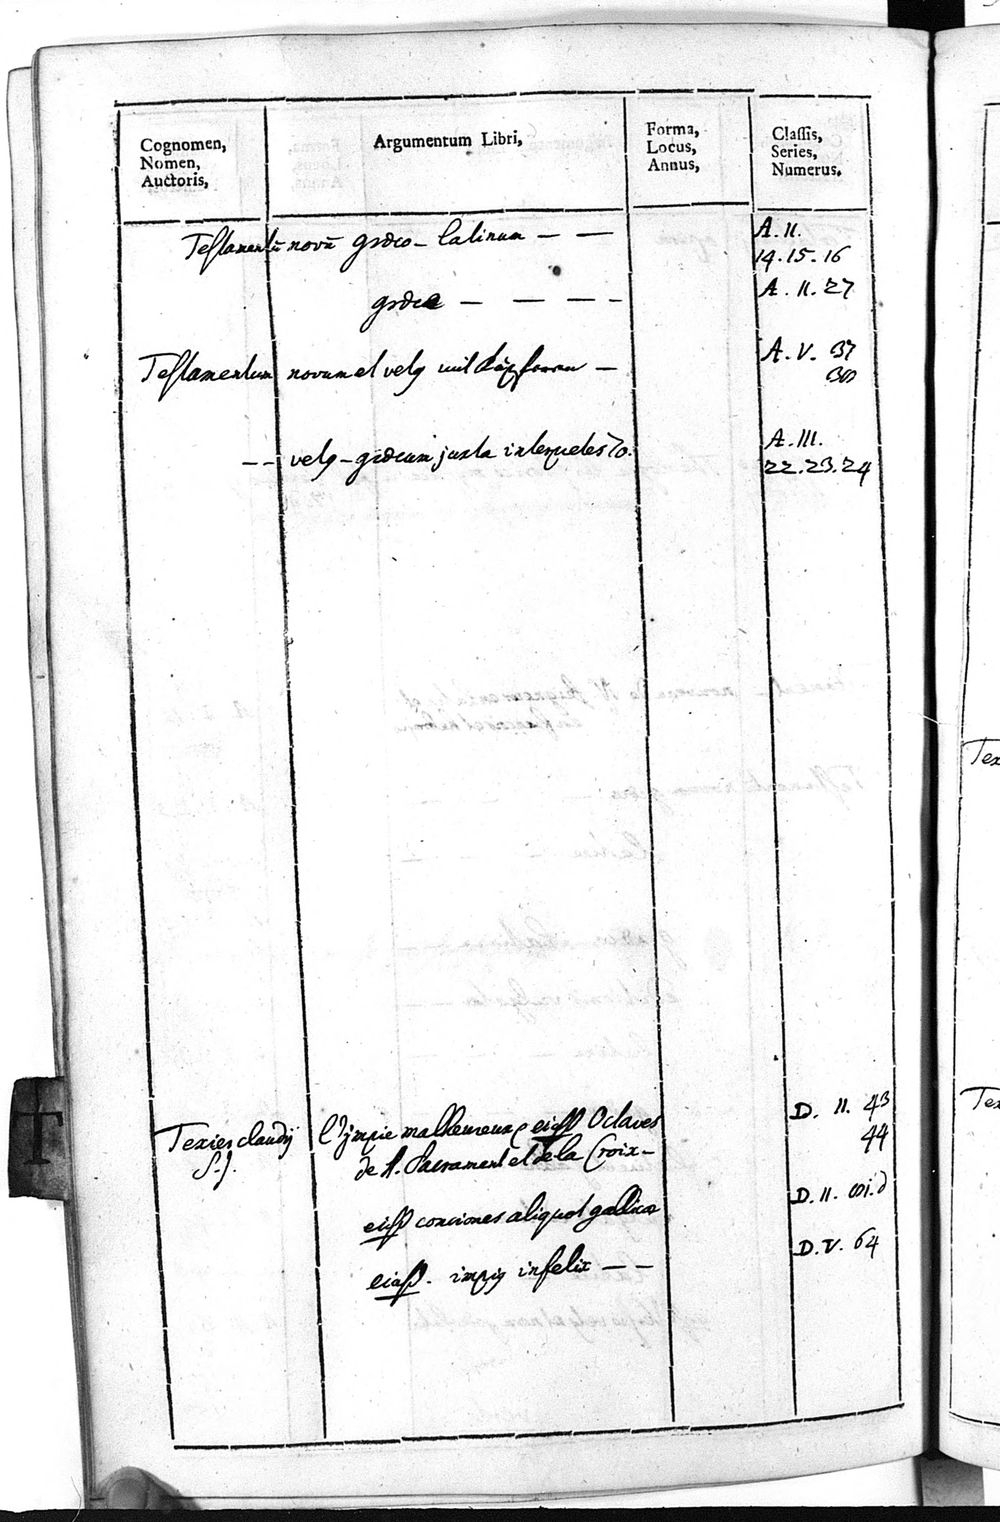 Cognomen,
Nomen,
Auctoris,
Argumentum Libri,
Forma,
Locus,
Annus,
Classis,
Series,
Numerus,
Testamentū novū græco - latinum — — A. II.
14. 15. 16
græce — — — - A. II. 27
Testamentum novum et vetq mit — A. V. 37
38
-- vetq - græcum juxta interpretes 70. A. III.
22. 23. 24
Texier claudij l'impie malheureux ejusd Octaves D. II. 43
S. J. de S. Sacrament et de la Croix - 44
ejusd conciones aliquot gallicæ D. II.
ejusd. impiq infelix — — D. V. 64
T
Tex
Tex